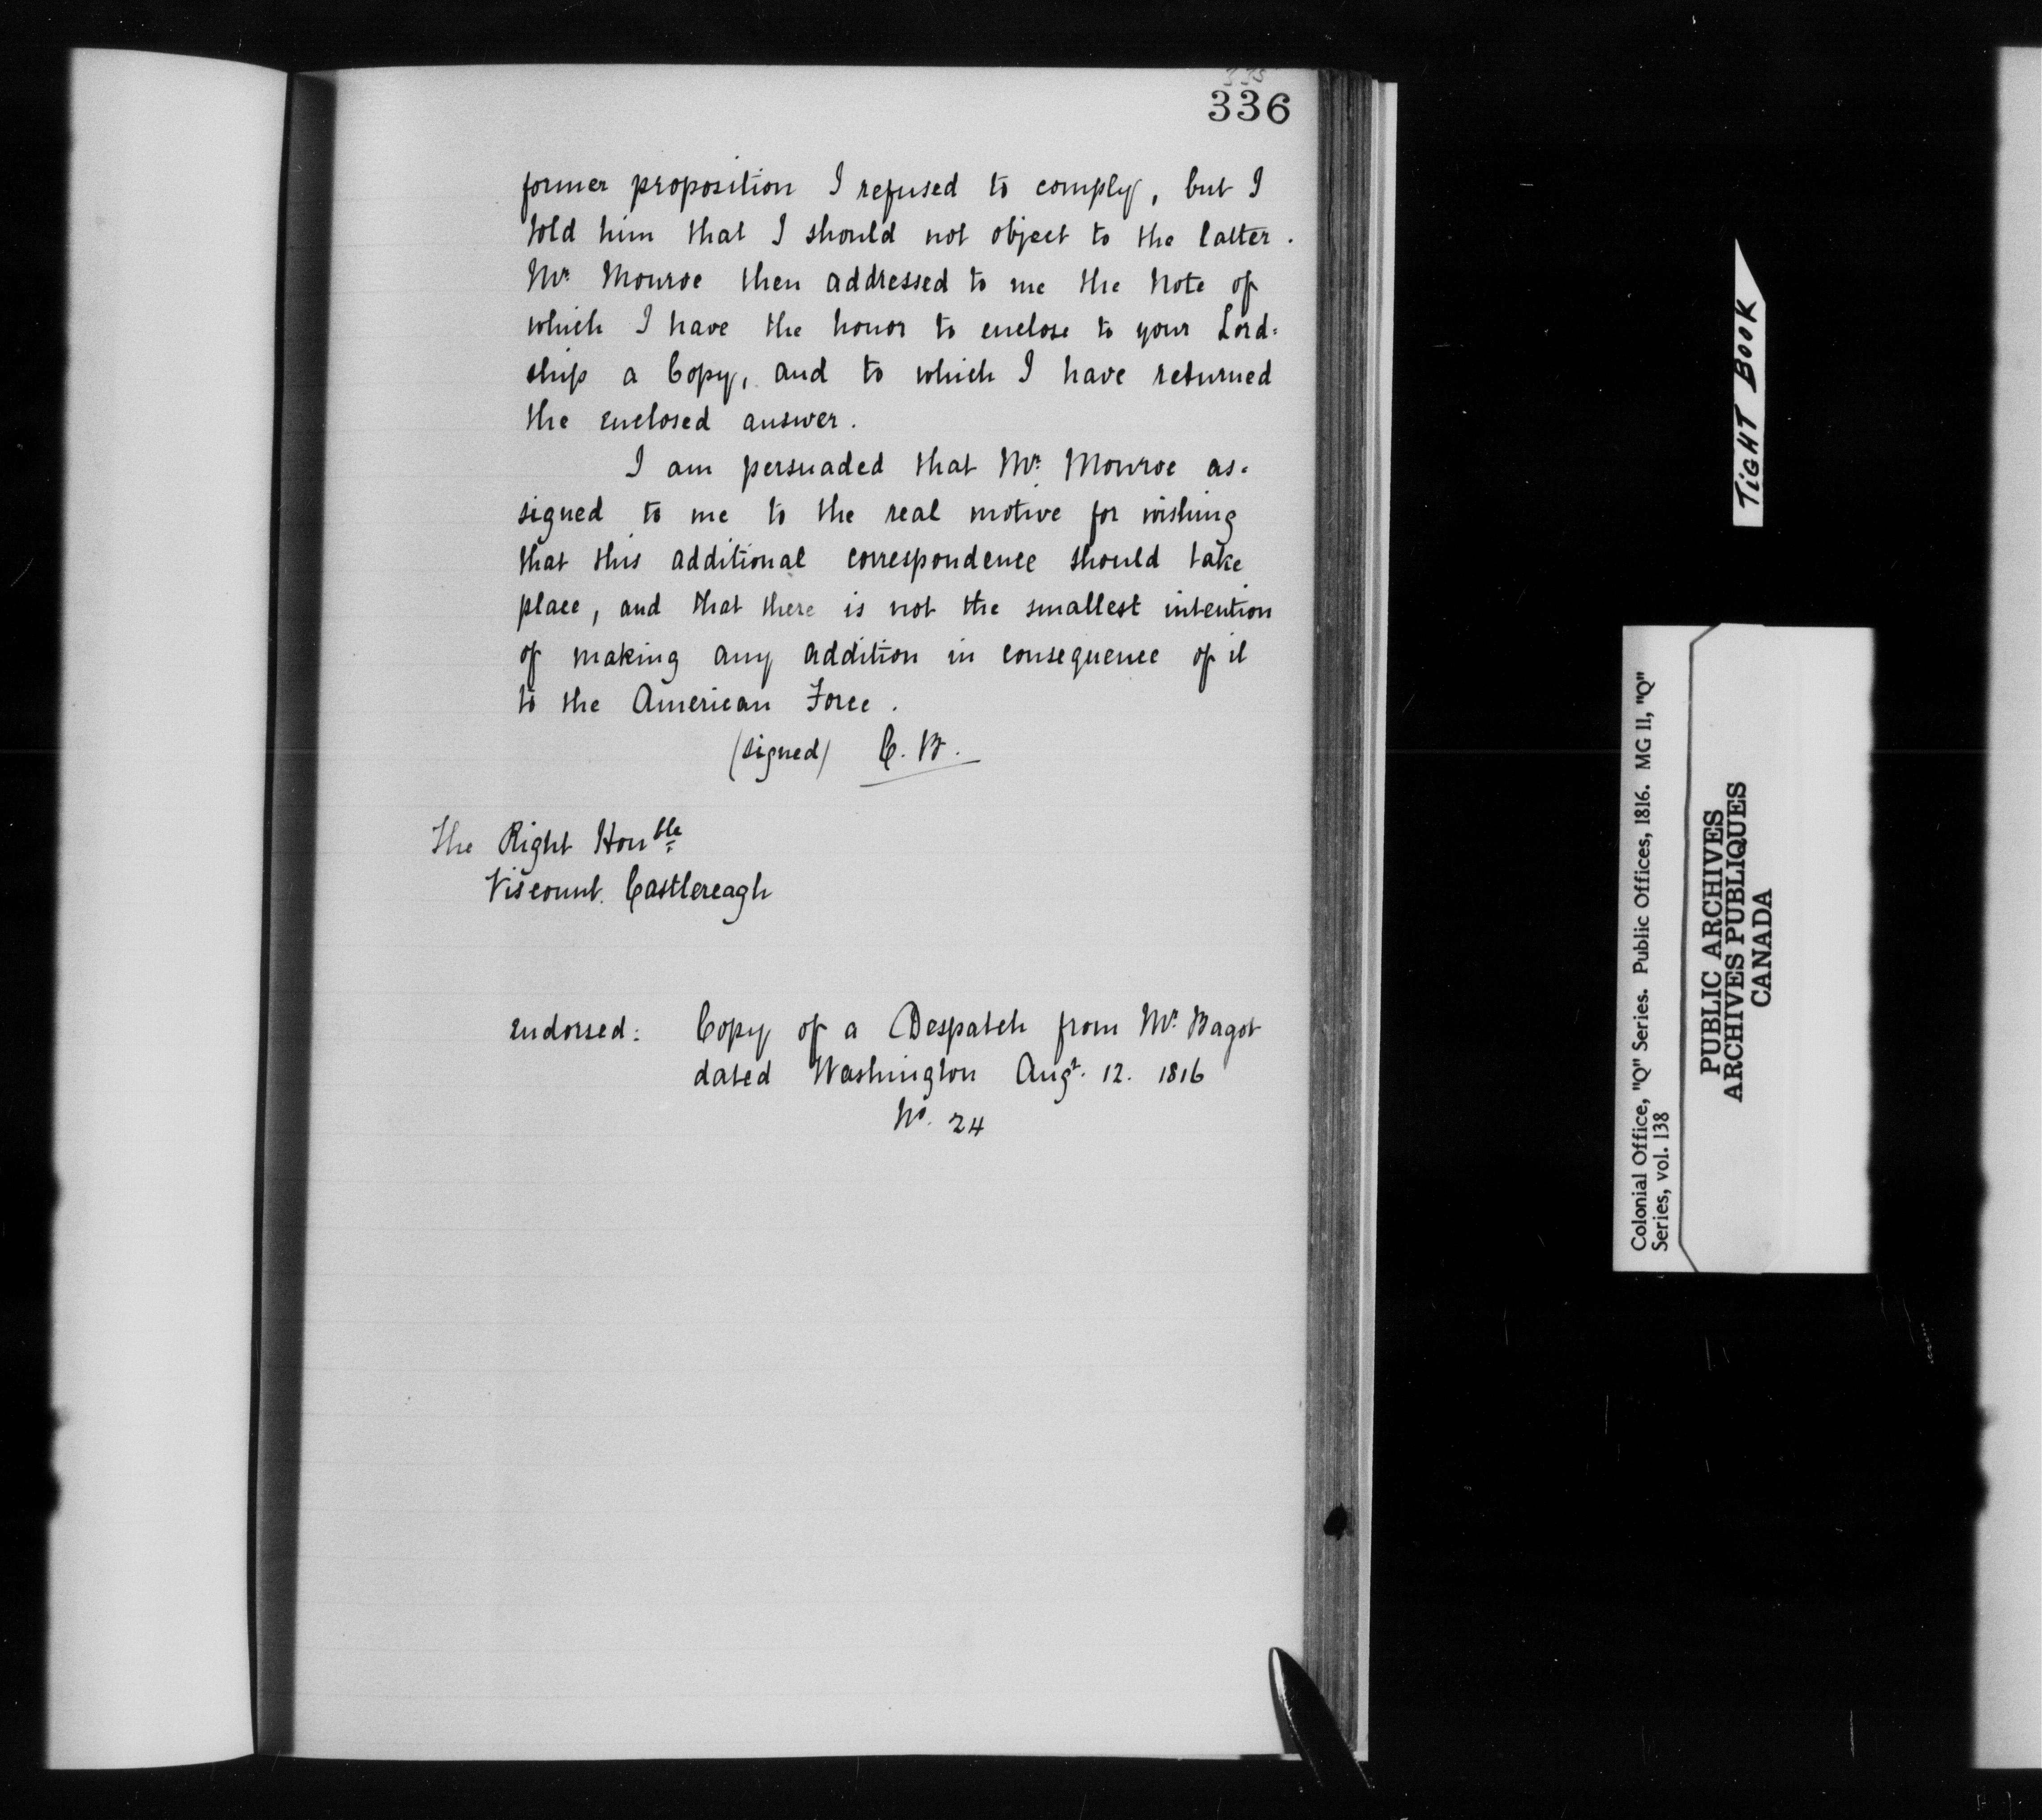 335
336
former proposition I refused to comply, but I
told him that I should not object to the latter.
Mr. Monroe then addressed to me the Note of
which I have the honor to enclose to your Lord=
ship a Copy, and to which I have returned
the enclosed answer.
I am persuaded that Mr. Monroe as=
signed to me to the real motive for wishing
that this additional correspondence should take
place, and that there is not the smallest intention
of making any addition in consequence of it
to the American Force.
(signed) C. B.
The Right Honble
Viscount Castlereagh
endorsed: Copy of a Despatch from Mr. Bagot
dated Washington Augt. 12. 1816
No. 24
TIGHT BOOK
Colonial Office, "Q" Series. Public Offices, 1816. MG 11, "Q"
Series, vol. 138
PUBLIC ARCHIVES
ARCHIVES PUBLIQUES
CANADA